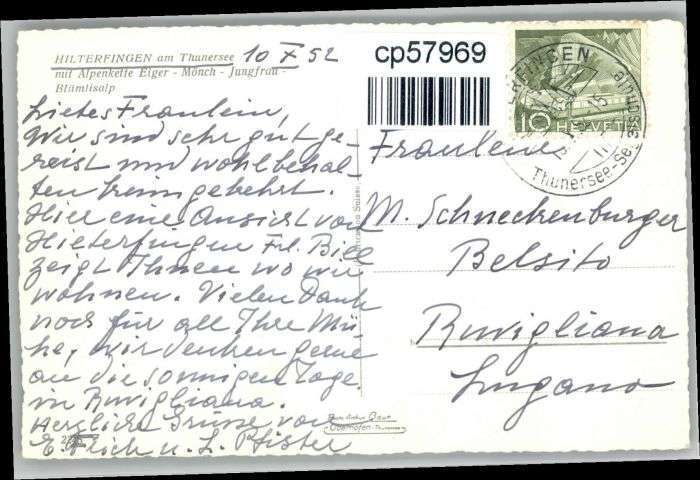 HILTERFINGEN am Thunersee 10 X 52
mit Alpenkette Eiger - Mönch - Jungfrau -
Blümlisalp
Liebes Fräulein,
Wir sind sehr gut ge-
reist und wohlbehal-
ten heimgekehrt.
Hier eine Ansicht von
Hilterfingen Frl. Bill
zeigt Ihnen wo wir
wohnen. Vielen Dank
noch für all Ihre Mü-
he, wir denken gerne
an die sonnigen Tage
in Ruvigliana.
Herzliche Grüsse von
E. Flich u. L. Pfister
cp57969
10 HELVETIA
Thunersee-Se
Fräulein
M. Schneckenburger
Belsito
Ruvigliana
Lugano
Oberhofen